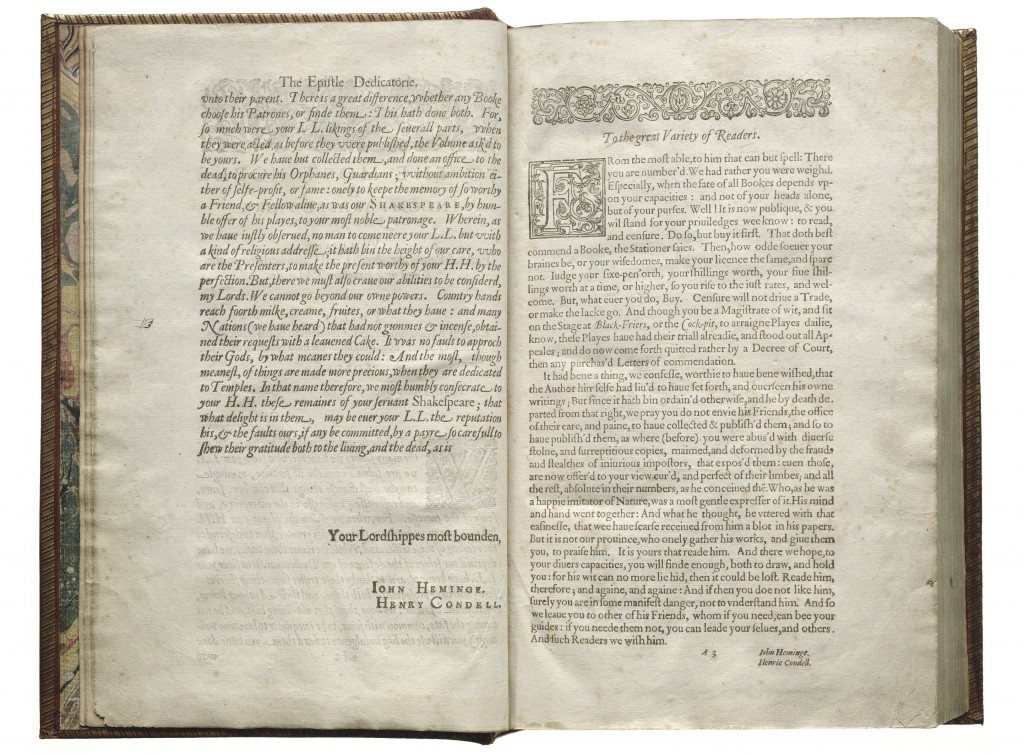 The Epistle Dedicatorie.
vnto their parent. There is a great difference, vvhether any Booke
choose his Patrones, or finde them: This hath done both. For,
so much were your L L. likings of the seuerall parts, vvhen
they were acted, as before they vvere published, the Volume ask'd to
be yours. We haue but collected them, and done an office to the
dead, to procure his Orphanes, Guardians; vvithout ambition ei-
ther of selfe-profit, or fame: onely to keepe the memory of so worthy
a Friend, & Fellow aliue, as was our SHAKESPEARE, by hum-
ble offer of his playes, to your most noble patronage. Wherein, as
we haue iustly obserued, no man to come neere your L.L. but vvith
a kind of religious addresse; it hath bin the height of our care, vvho
are the Presenters, to make the present worthy of your H.H. by the
perfection. But, there we must also craue our abilities to be considerd,
my Lords. We cannot go beyond our owne powers. Country hands
reach foorth milke, creame, fruites, or what they haue: and many
Nations (we haue heard) that had not gummes & incense, obtai-
ned their requests with a leauened Cake. It was no fault to approch
their Gods, by what meanes they could: And the most, though
meanest, of things are made more precious, when they are dedicated
to Temples. In that name therefore, we most humbly consecrate to
your H.H. these remaines of your seruant Shakespeare; that
what delight is in them, may be euer your L.L. the reputation
his, & the faults ours, if any be committed, by a payre so carefull to
shew their gratitude both to the liuing, and the dead, as is
Your Lordshippes most bounden,
IOHN HEMINGE.
HENRY CONDELL.
To the great Variety of Readers.
FRom the most able, to him that can but spell: There
you are number'd. We had rather you were weighd.
Especially, when the fate of all Bookes depends vp-
on your capacities: and not of your heads alone,
but of your purses. Well! It is now publique, & you
wil stand for your priuiledges wee know: to read,
and censure. Do so, but buy it first. That doth best
commend a Booke, the Stationer saies. Then, how odde soeuer your
braines be, or your wisedomes, make your licence the same, and spare
not. Iudge your sixe-pen'orth, your shillings worth, your fiue shil-
lings worth at a time, or higher, so you rise to the iust rates, and wel-
come. But, what euer you do, Buy. Censure will not driue a Trade,
or make the Iacke go. And though you be a Magistrate of wit, and sit
on the Stage at Black-Friers, or the Cock-pit, to arraigne Playes dailie,
know, these Playes haue had their triall alreadie, and stood out all Ap-
peales; and do now come forth quitted rather by a Decree of Court,
then any purchas'd Letters of commendation.
It had bene a thing, we confesse, worthie to haue bene wished, that
the Author himselfe had liu'd to haue set forth, and ouerseen his owne
writings; But since it hath bin ordain'd otherwise, and he by death de-
parted from that right, we pray you do not envie his Friends, the office
of their care, and paine, to haue collected & publish'd them; and so to
haue publish'd them, as where (before) you were abus'd with diuerse
stolne, and surreptitious copies, maimed, and deformed by the frauds
and stealthes of iniurious impostors, that expos'd them: euen those,
are now offer'd to your view cur'd, and perfect of their limbes; and all
the rest, absolute in their numbers, as he conceiued thē. Who, as he was
a happie imitator of Nature, was a most gentle expresser of it. His mind
and hand went together: And what he thought, he vttered with that
easinesse, that wee haue scarse receiued from him a blot in his papers.
But it is not our prouince, who onely gather his works, and giue them
you, to praise him. It is yours that reade him. And there we hope, to
your diuers capacities, you will finde enough, both to draw, and hold
you: for his wit can no more lie hid, then it could be lost. Reade him,
therefore; and againe, and againe: And if then you doe not like him,
surely you are in some manifest danger, not to vnderstand him. And so
we leaue you to other of his Friends, whom if you need, can bee your
guides: if you neede them not, you can leade your selues, and others.
And such Readers we wish him.
A 3 Iohn Heminge.
Henrie Condell.